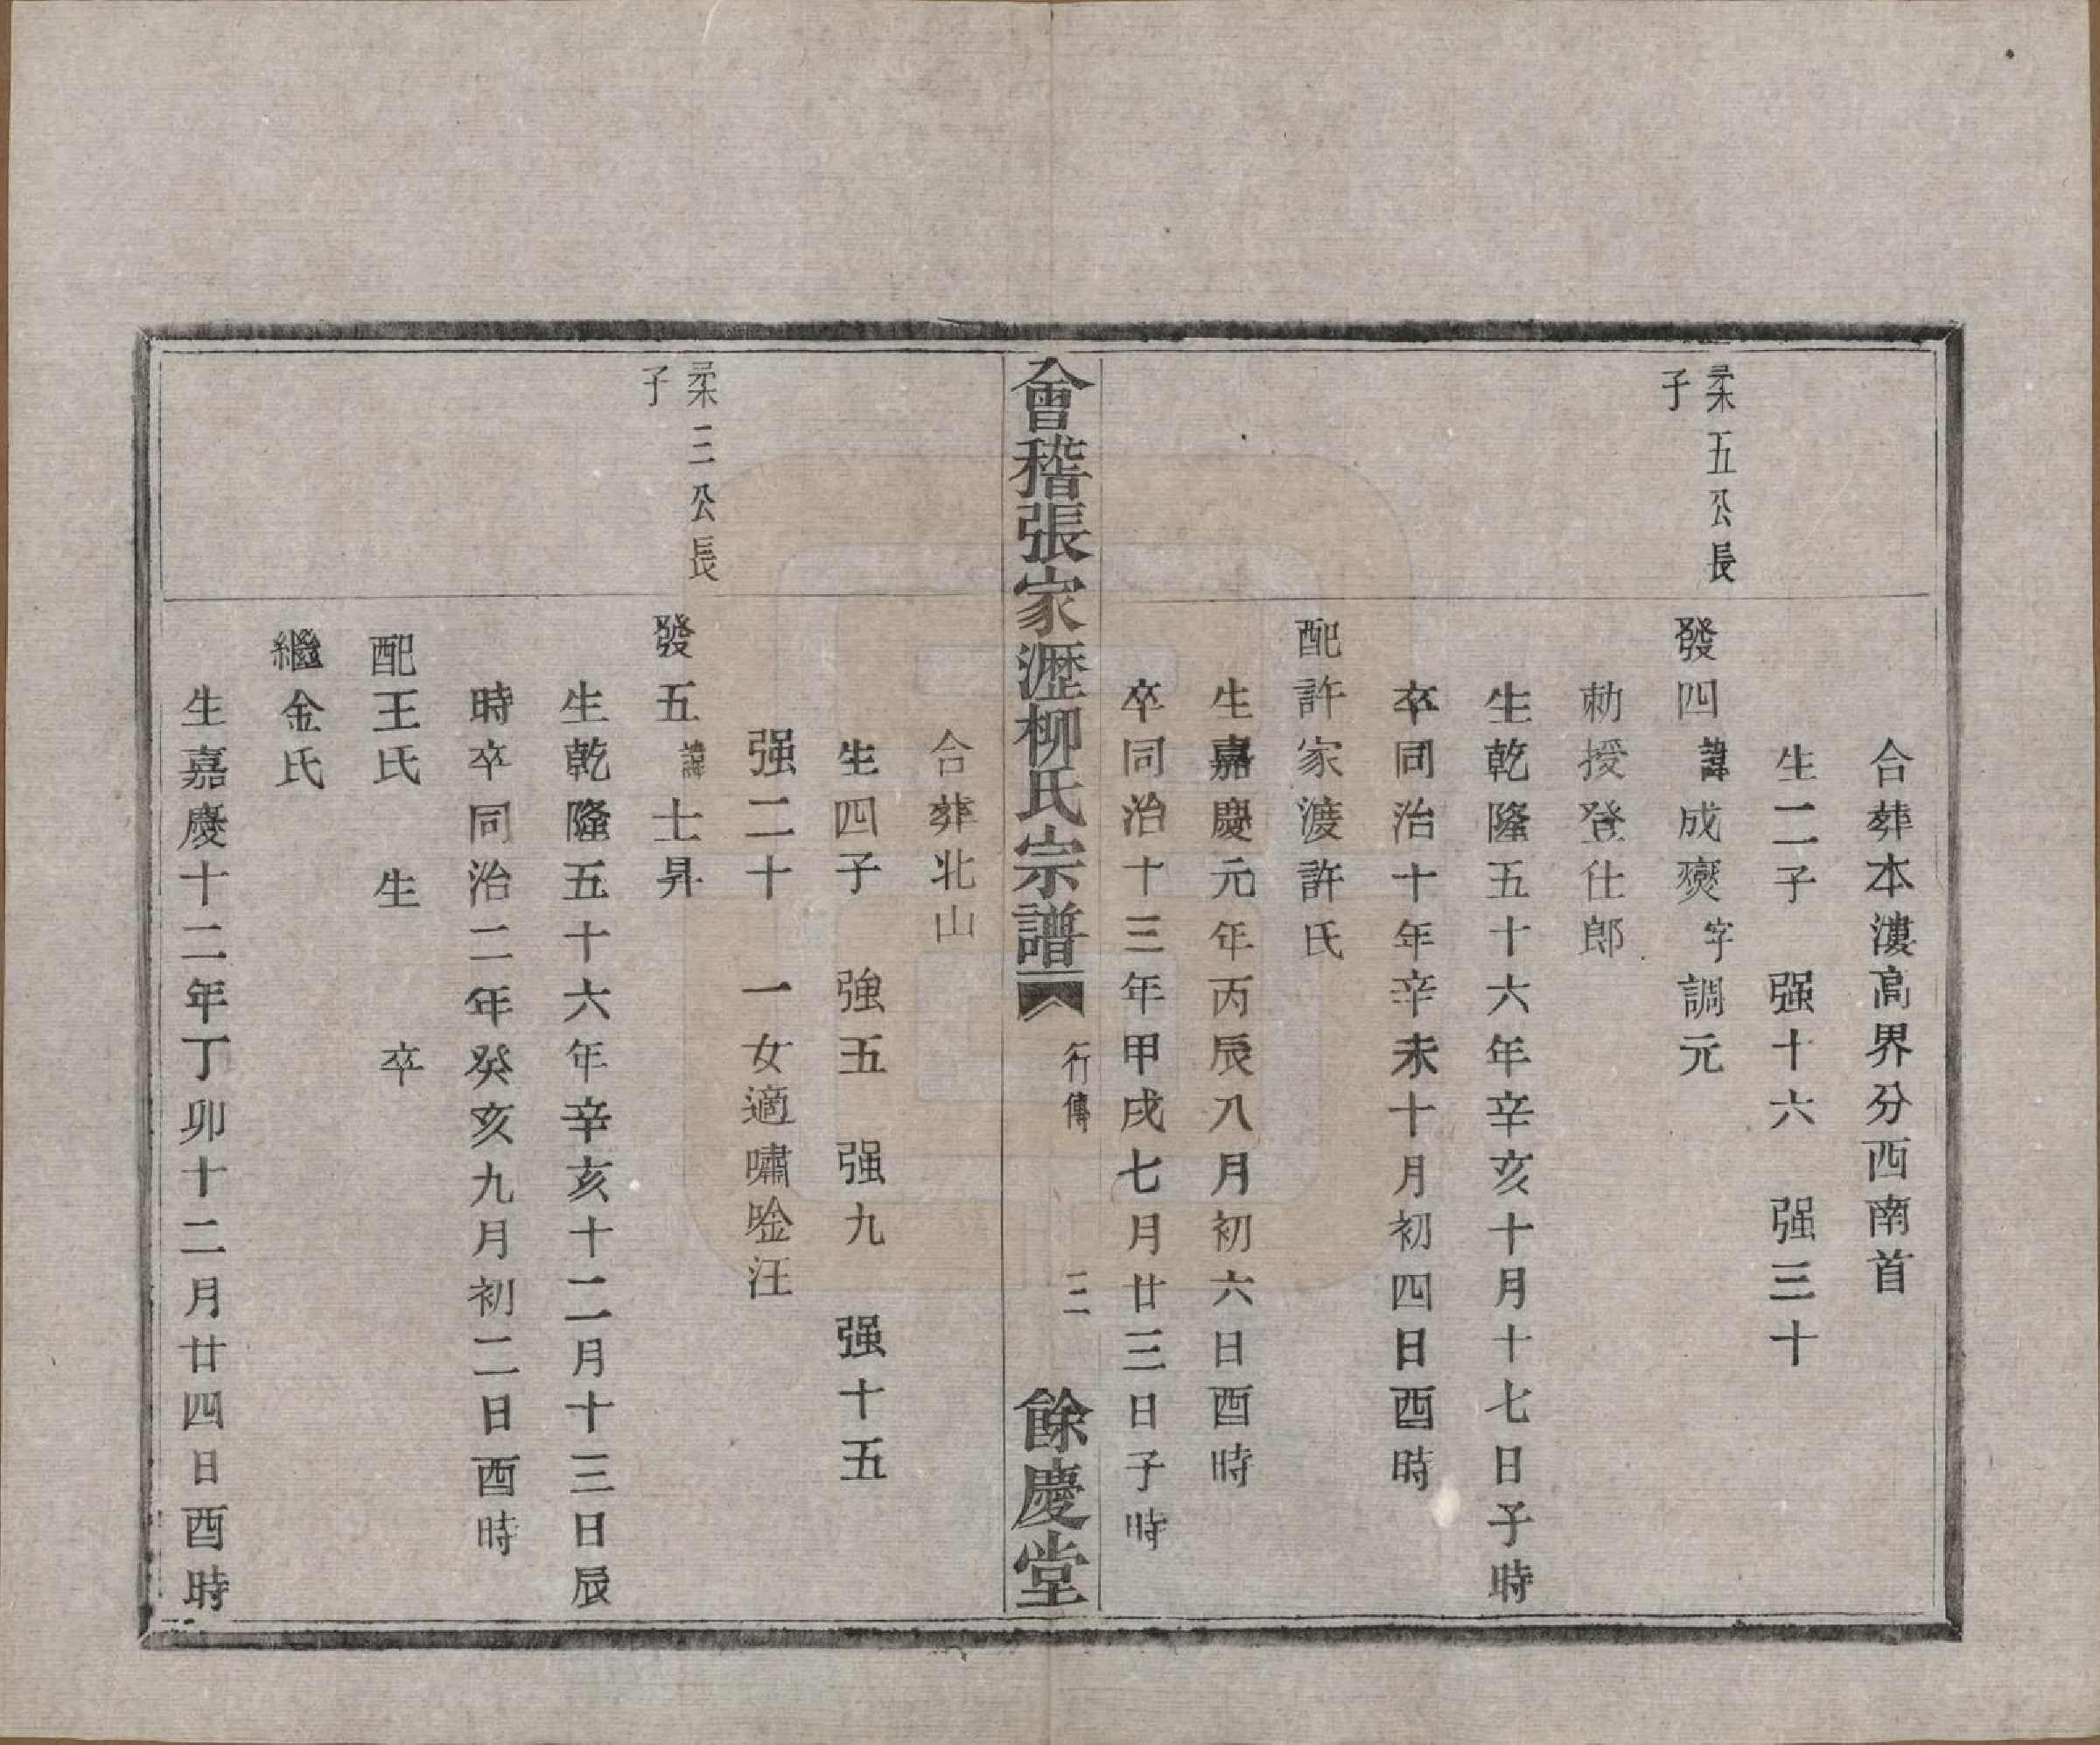 合葬本漊高界分西南首
生二子　强十六　强三十
柔五公長
子
發四諱成爕字調元
勅授登仕郎
生乾隆五十六年辛亥十月十七日子時
卒同治十年辛未十月初四日酉時
配許家渡許氏
生嘉慶元年丙辰八月初六日酉時
卒同治十三年甲戌七月廿三日子時
會稽張家瀝柳氏宗譜　行傳　三　餘慶堂
合葬北山
生四子　強五　强九　强十五
强二十　一女適嘯唫汪
柔三公長
子
發五諱士昇
生乾隆五十六年辛亥十二月十三日辰
時卒同治二年癸亥九月初二日酉時
配王氏　生　卒
繼金氏
生嘉慶十二年丁卯十二月廿四日酉時